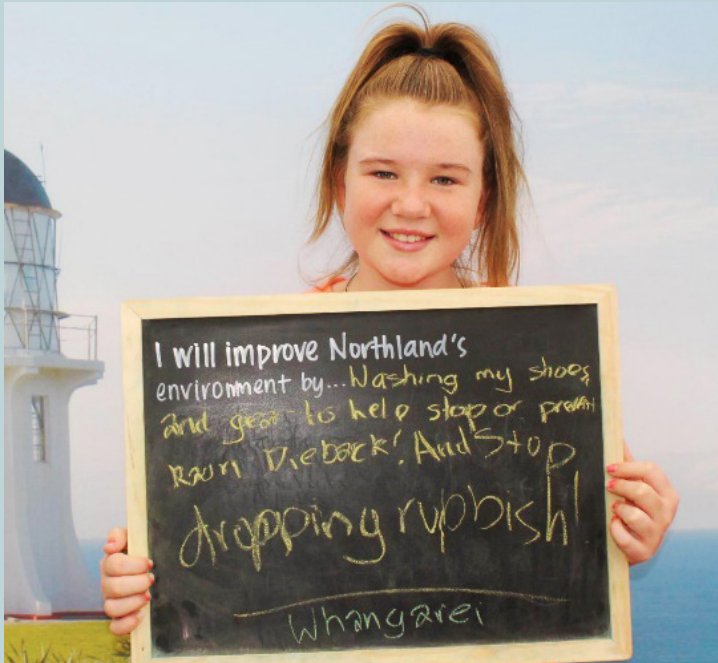 I will improve Northland's
environment by... Washing my shoes
and gear to help stop or prevent
Kauri Dieback! And Stop
dropping rubbish!
Whangarei